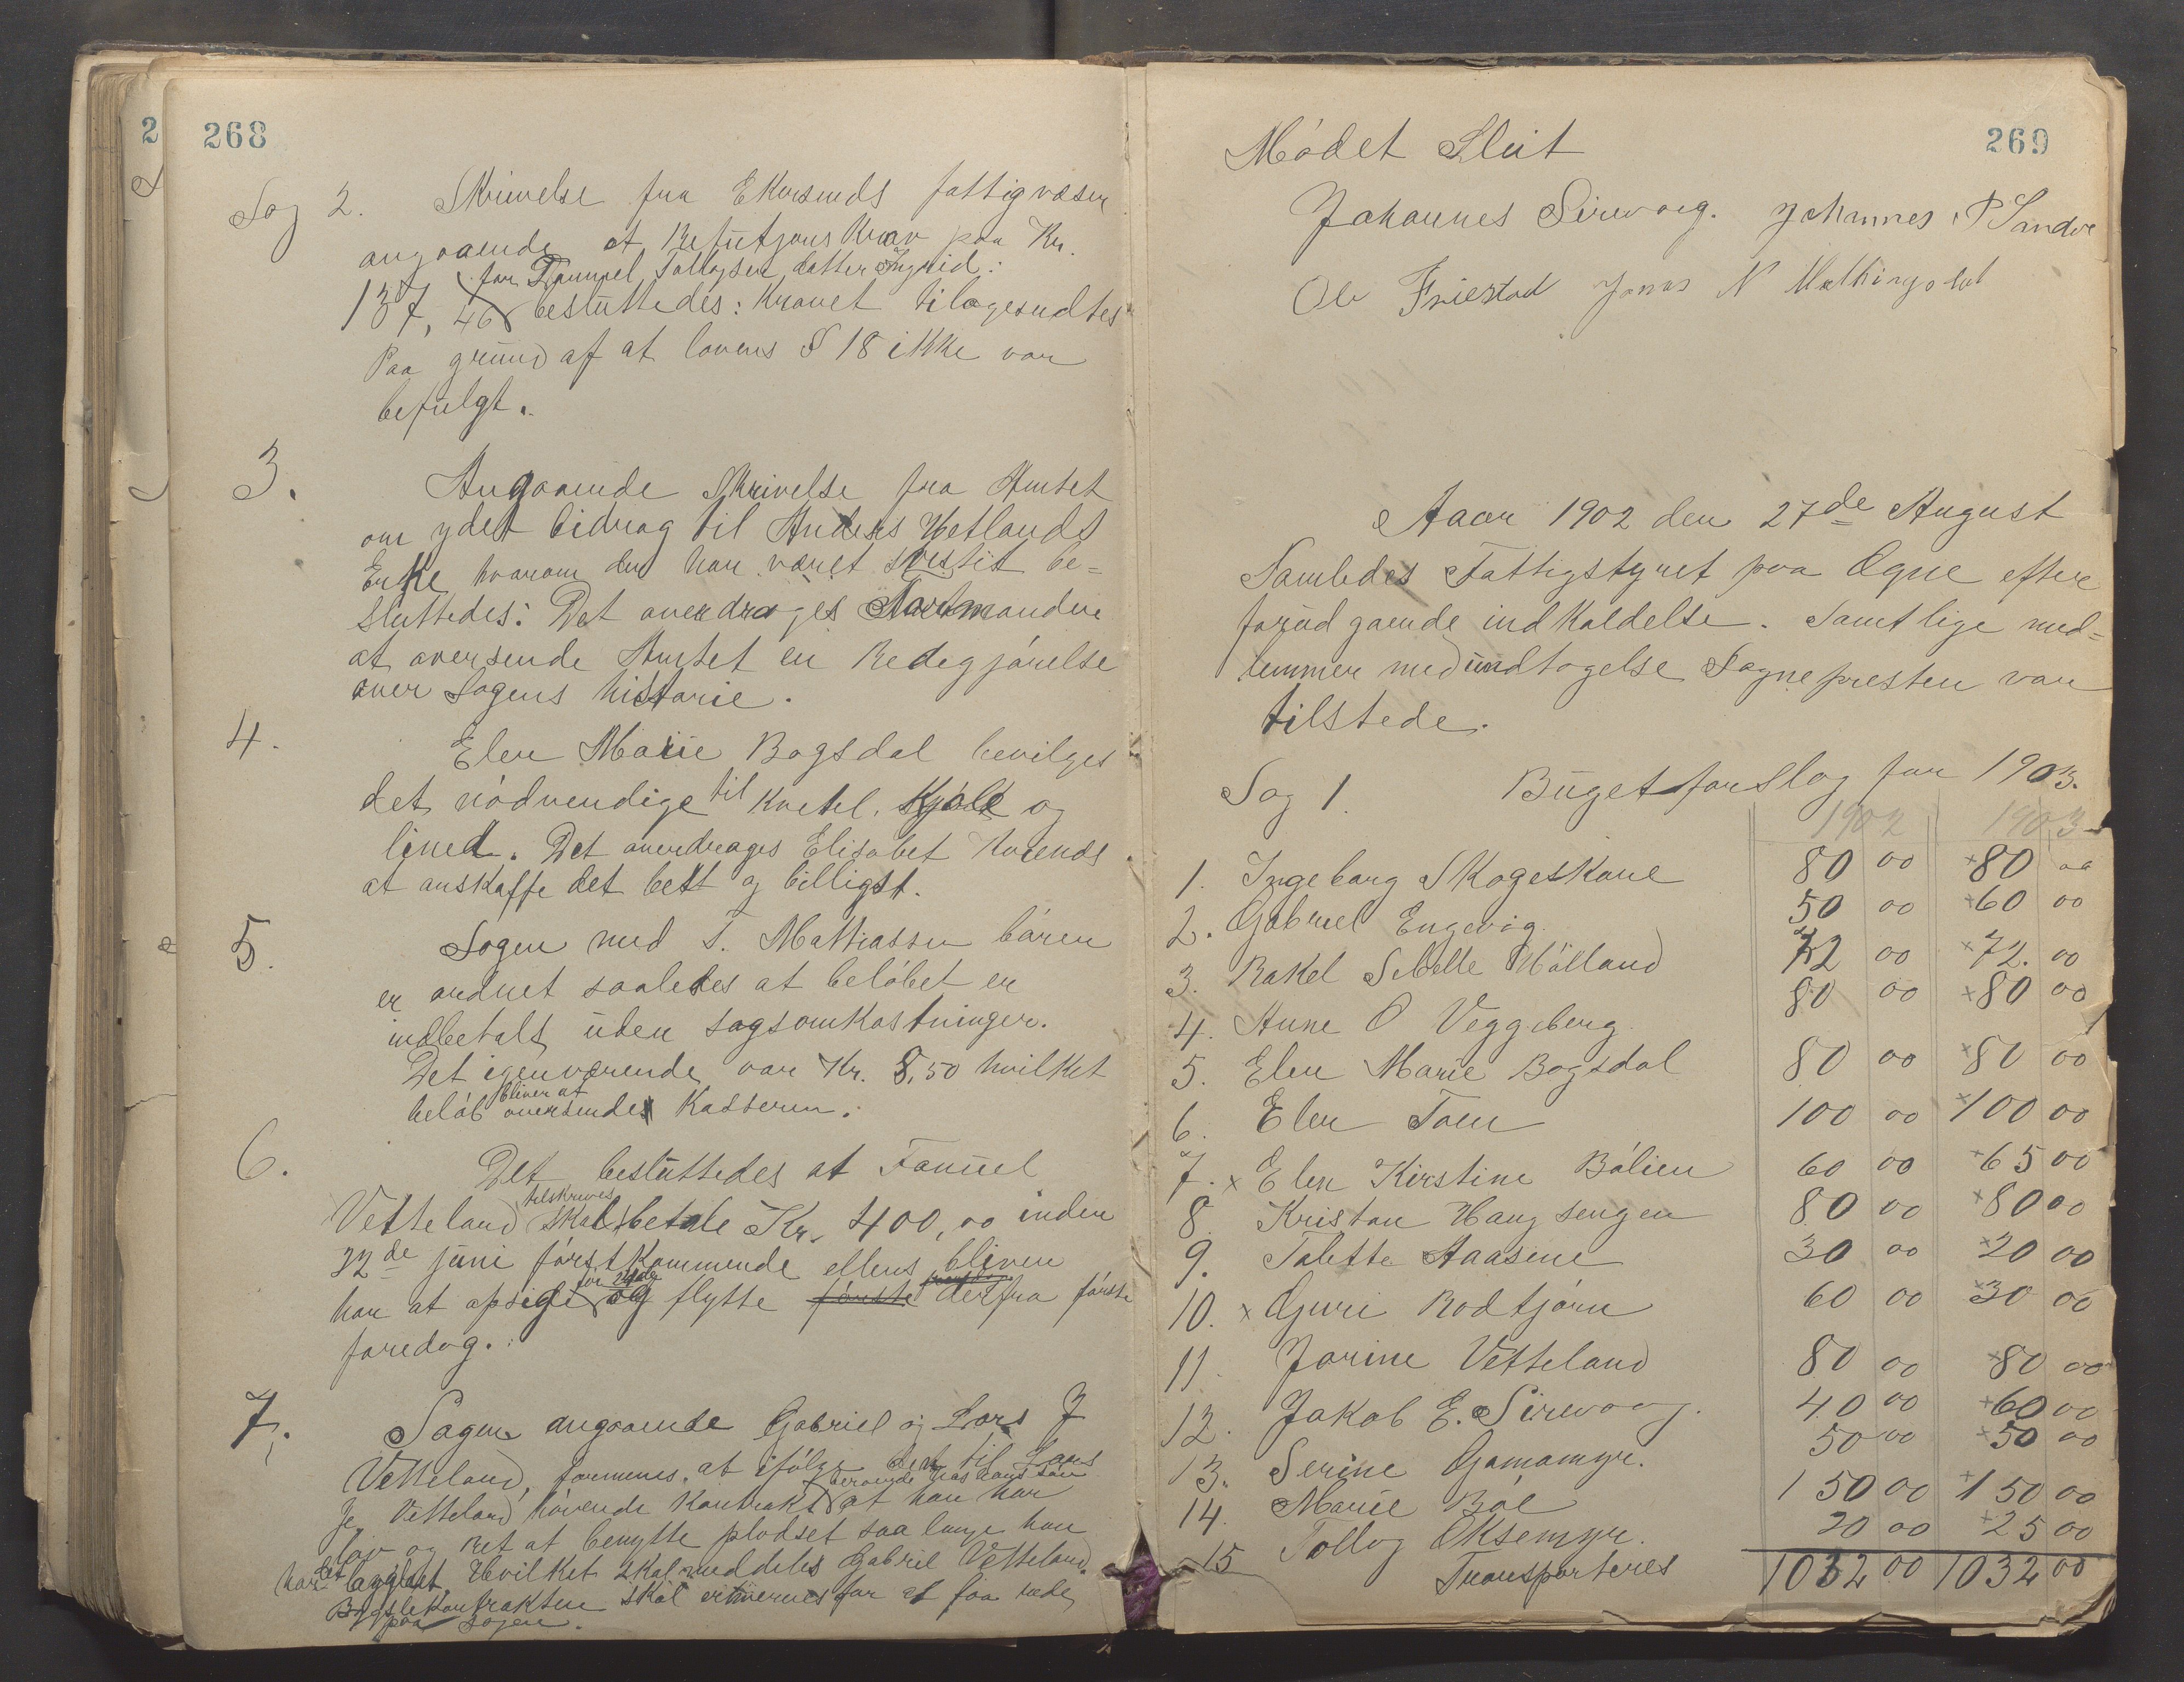 268
Sag 2. Skrivelse fra Ekersunds fattigvæsen
angaaende et Refutsjons Krav paa Kr.
for Samuel Tollagsens datter Ingrid:
137,46 besluttedes: Kravet tilagesendtes
Paa grund af at lovens § 18 ikke var
befulgt.
3. Angaaende Skrivelse fra Amtet
om ydet bidrag til Anders Hetlands
Enke hvorom der har været tvistit be=
sluttedes: Det overdrages Formanden
at oversende Amtet en Redegjørelse
over Sagens historie.
4. Elen Marie Bogsdal bevilges
det nødvendige til Kvehl. Kjole og
lined. Det overdrages Elisabet Kvends
at anskaffe det best og billigst.
5. Sagen med T. Mathiassen børen
er ordnet saaledes at beløbet er
indbetalt uden sagsomkostninger.
Det igenværende var Kr. 8,50 hvilket
bliver at
beløb oversendes Kasseren.
6. Det besluttedes at Samuel
tilskrives
Vetteland skal betale Kr. 400,00 inden
22de juni førstkommende ellers bliver
han at opsige og flytte første derfra første
faredag.
7. Sagen angaaende Gabriel og Lars J
Vetteland, formenes, at ifølge den til Lars
beroende hos hans søn
J. Vetteland havende Kontrakt at han har
lov og ret at benytte pladset saa lenge han
har det bygslet. Hvilket skal meddeles Gabriel Vetteland.
Bygslekontrakten skal erhverves for at faa rede
paa sagen.
269
Mødet Slut
Johannes Sirevaag. Johannes P Sandve
Ole Friestad Jonas N Matningsdal
Aaar 1902 den 27de August
Samledes Fattigstyret paa Ogne efter
forudgaende indkaldelse. Samtlige med=
lemmer med undtagelse Sognepresten var
tilstede.
Sag 1. Bugetforslag for 1903.
1902 1903
1. Ingeborg Skogeskone 80 00 +80 00
2. Gabriel Engevig 50 00 +60 00
3. Rakel Sibelle Hölland 72 00 +72. 00
4. Anne O Veggeberg 80 00 +80 00
5. Elen Marie Bogsdal 80 00 +80 00
6. Elen Toen 100 00 +100 00
7. x Elen Kirstine Bølien 60 00 +65 00
8. Kristan Haugsengen 80 00 +80 00
9. Talette Aasene 30 00 +20 00
10. x Guri Rodtjørn 60 00 +30 00
11. Jorine Vetteland 80 00 +80 00
12. Jakob E. Sirevaag. 40 00 +60 00
13. Serine Gamamyr. 50 00 +50 00
14. Marie Bøe 150 00 +150 00
15 Tollag Oksemyr. 20 00 +25 00
Transporteres 1032 00 1032 00